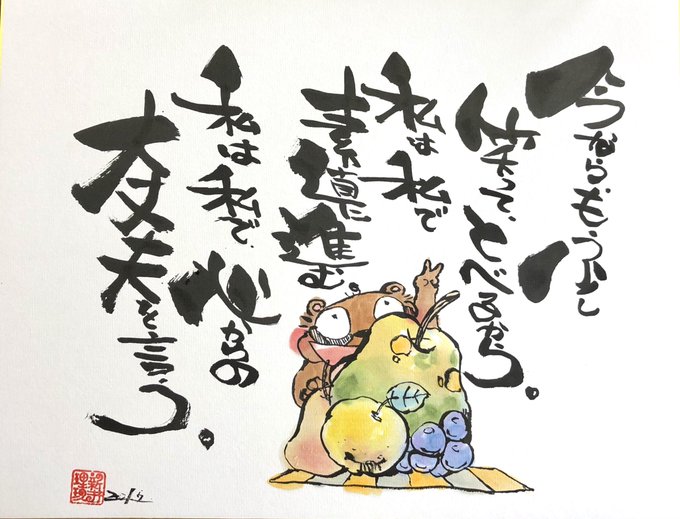 今ならもう少し
笑って、とべるから。
私は私で
素直に進む
私は私で、
心からの
大丈夫を言う。